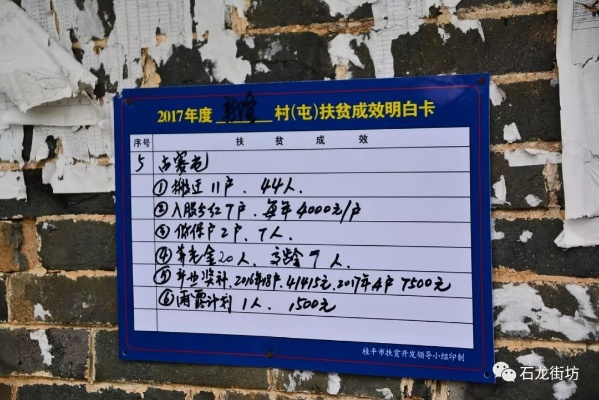 2017年度 新隆 村(屯)扶贫成效明白卡
序号 扶贫成效
5 古赛屯
①搬迁11户、44人.
②入股分红7户、每年4000元/户
③低保户2户、7人.
④养老金20人、高龄7人.
⑤产业奖补、2016年18户、41415元、2017年4户7500元
⑥雨露计划1人、1500元
桂平市扶贫开发领导小组印制
石龙街坊